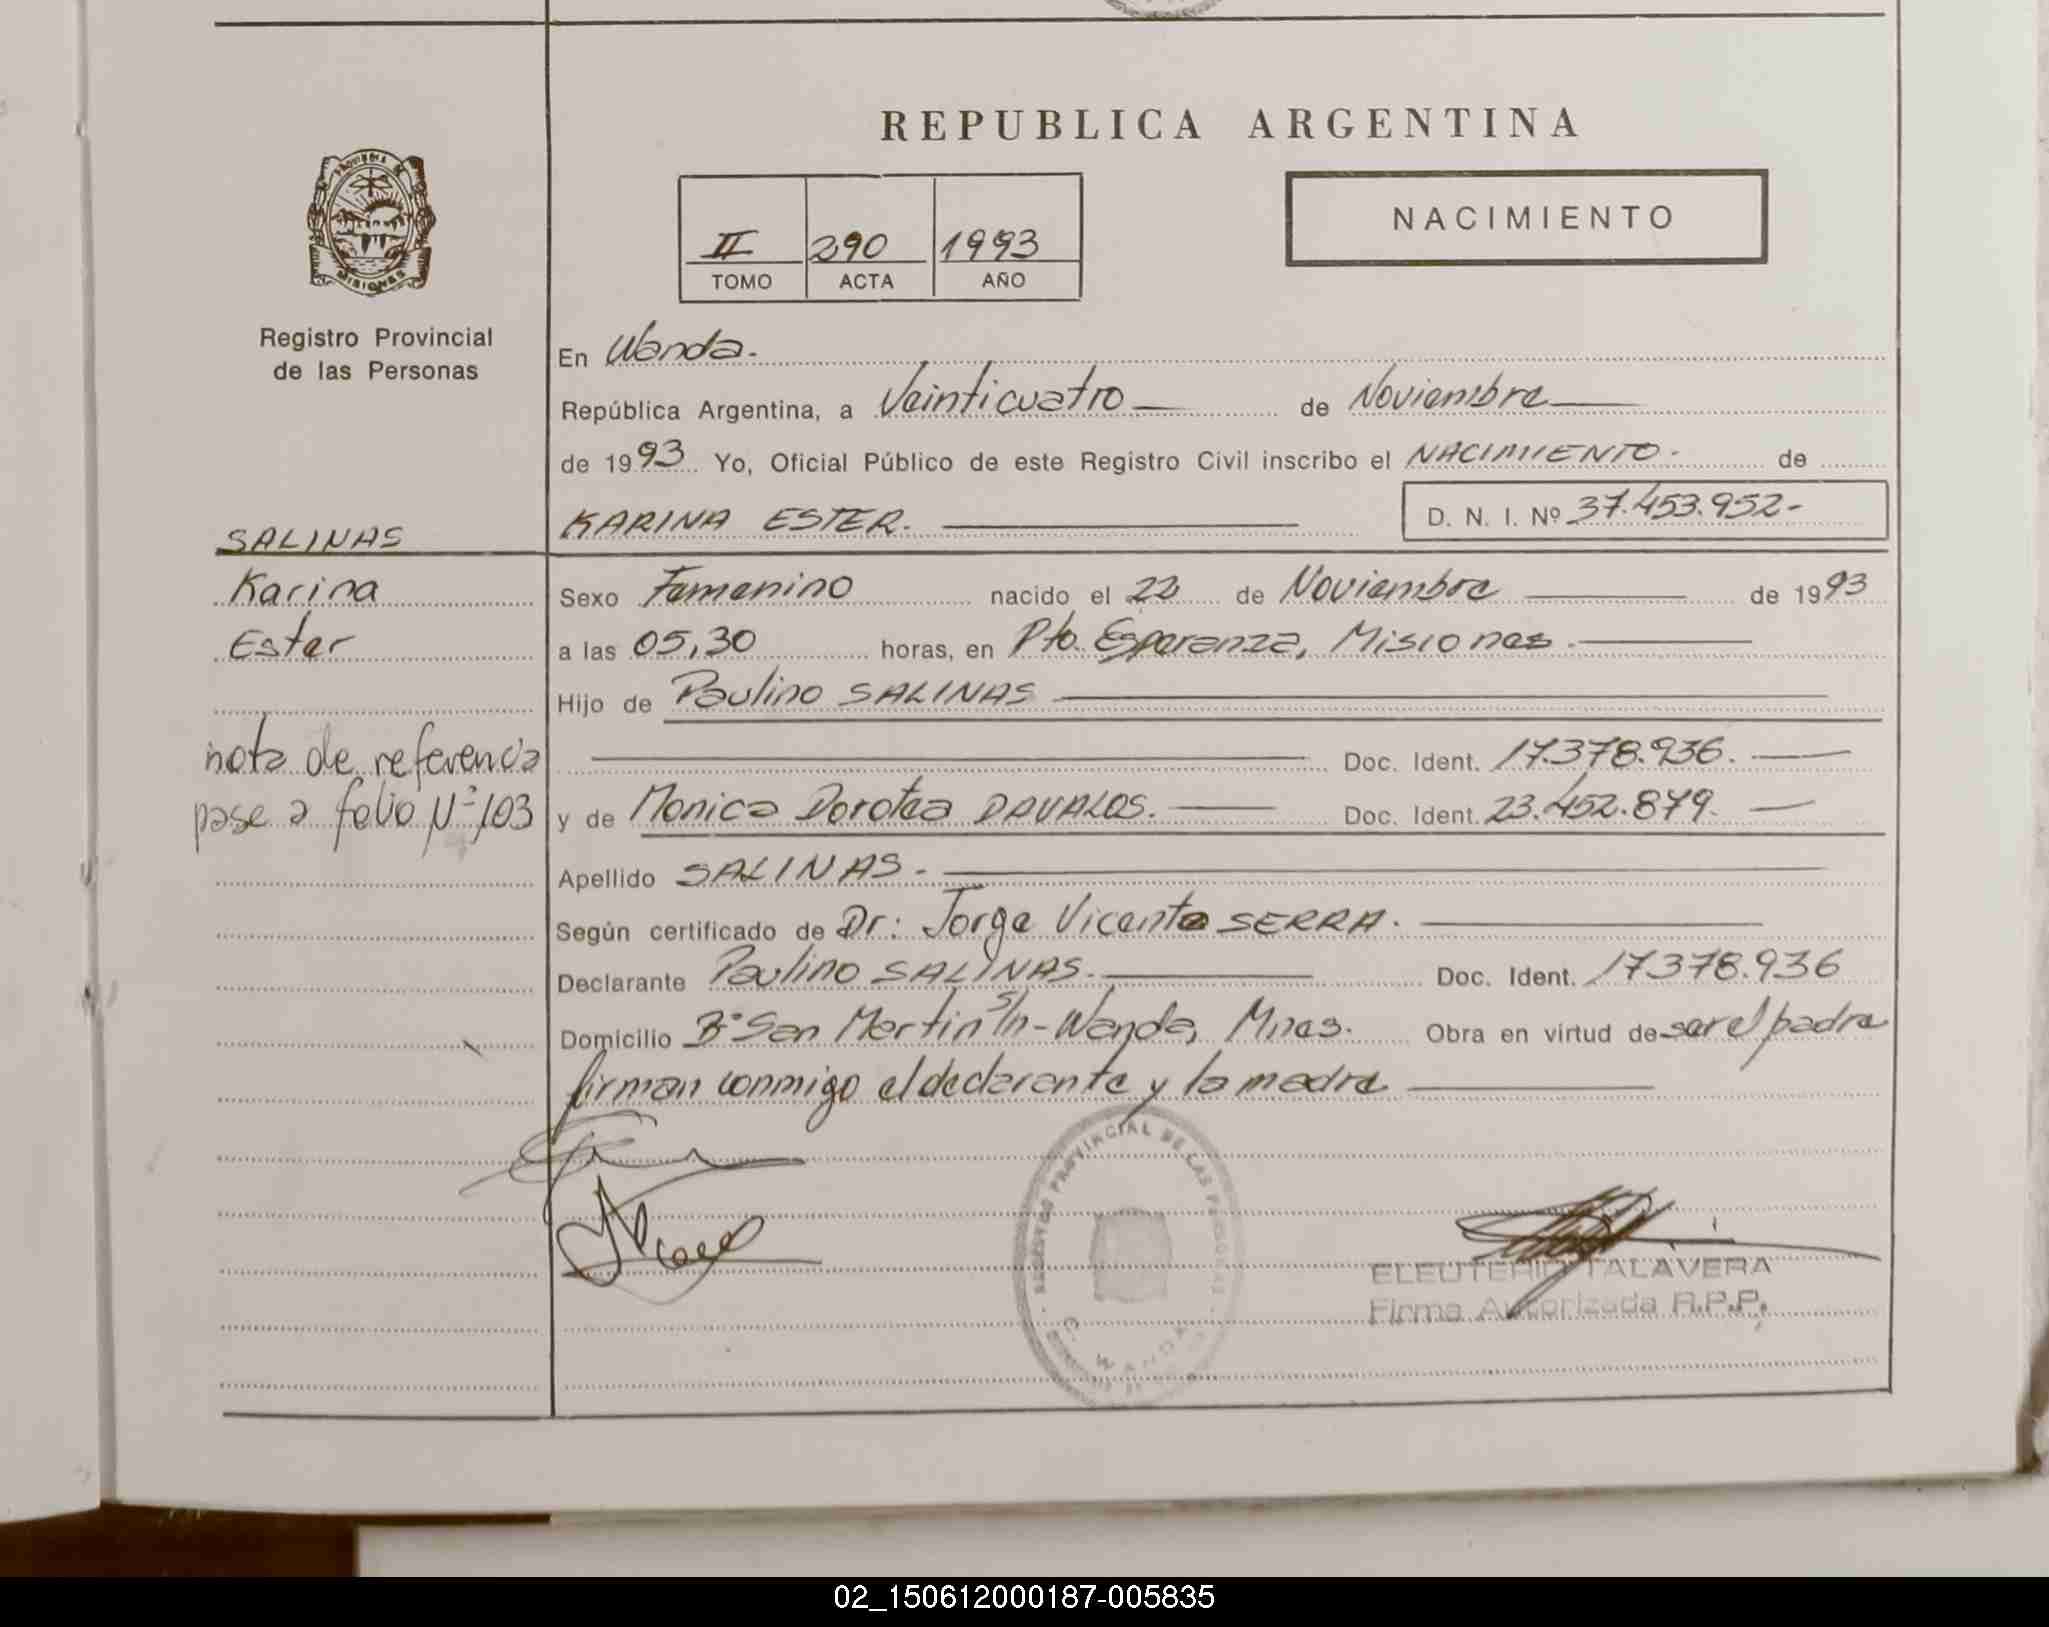 REPUBLICA ARGENTINA
PROVINCIA DE MISIONES
Registro Provincial
de las Personas
II 290 1993
TOMO ACTA AÑO
NACIMIENTO
En Wanda.
República Argentina, a Veinticuatro de Noviembre
de 1993 Yo, Oficial Público de este Registro Civil inscribo el NACIMIENTO. de
KARINA ESTER. D. N. I. Nº 37.453.952-
SALINAS
Karina
Ester
nota de referencia
pase a folio Nº 103
Sexo Femenino nacido el 22 de Noviembre de 1993
a las 05,30 horas, en Pto. Esperanza, Misiones.
Hijo de Paulino SALINAS
Doc. Ident. 17.378.936.
y de Monica Dorotea DAVALOS. Doc. Ident. 23.452.879.
Apellido SALINAS.
Según certificado de Dr: Jorge Vicente SERRA.
Declarante Paulino SALINAS. Doc. Ident. 17378.936
Domicilio Bº San Martin s/n - Wanda, Mnes. Obra en virtud de ser el padre
firman conmigo el declarante y la madre
REGISTRO PROVINCIAL DE LAS PERSONAS
WANDA
ELEUTERIO TALAVERA
Firma Autorizada R.P.P.
02_150612000187-005835